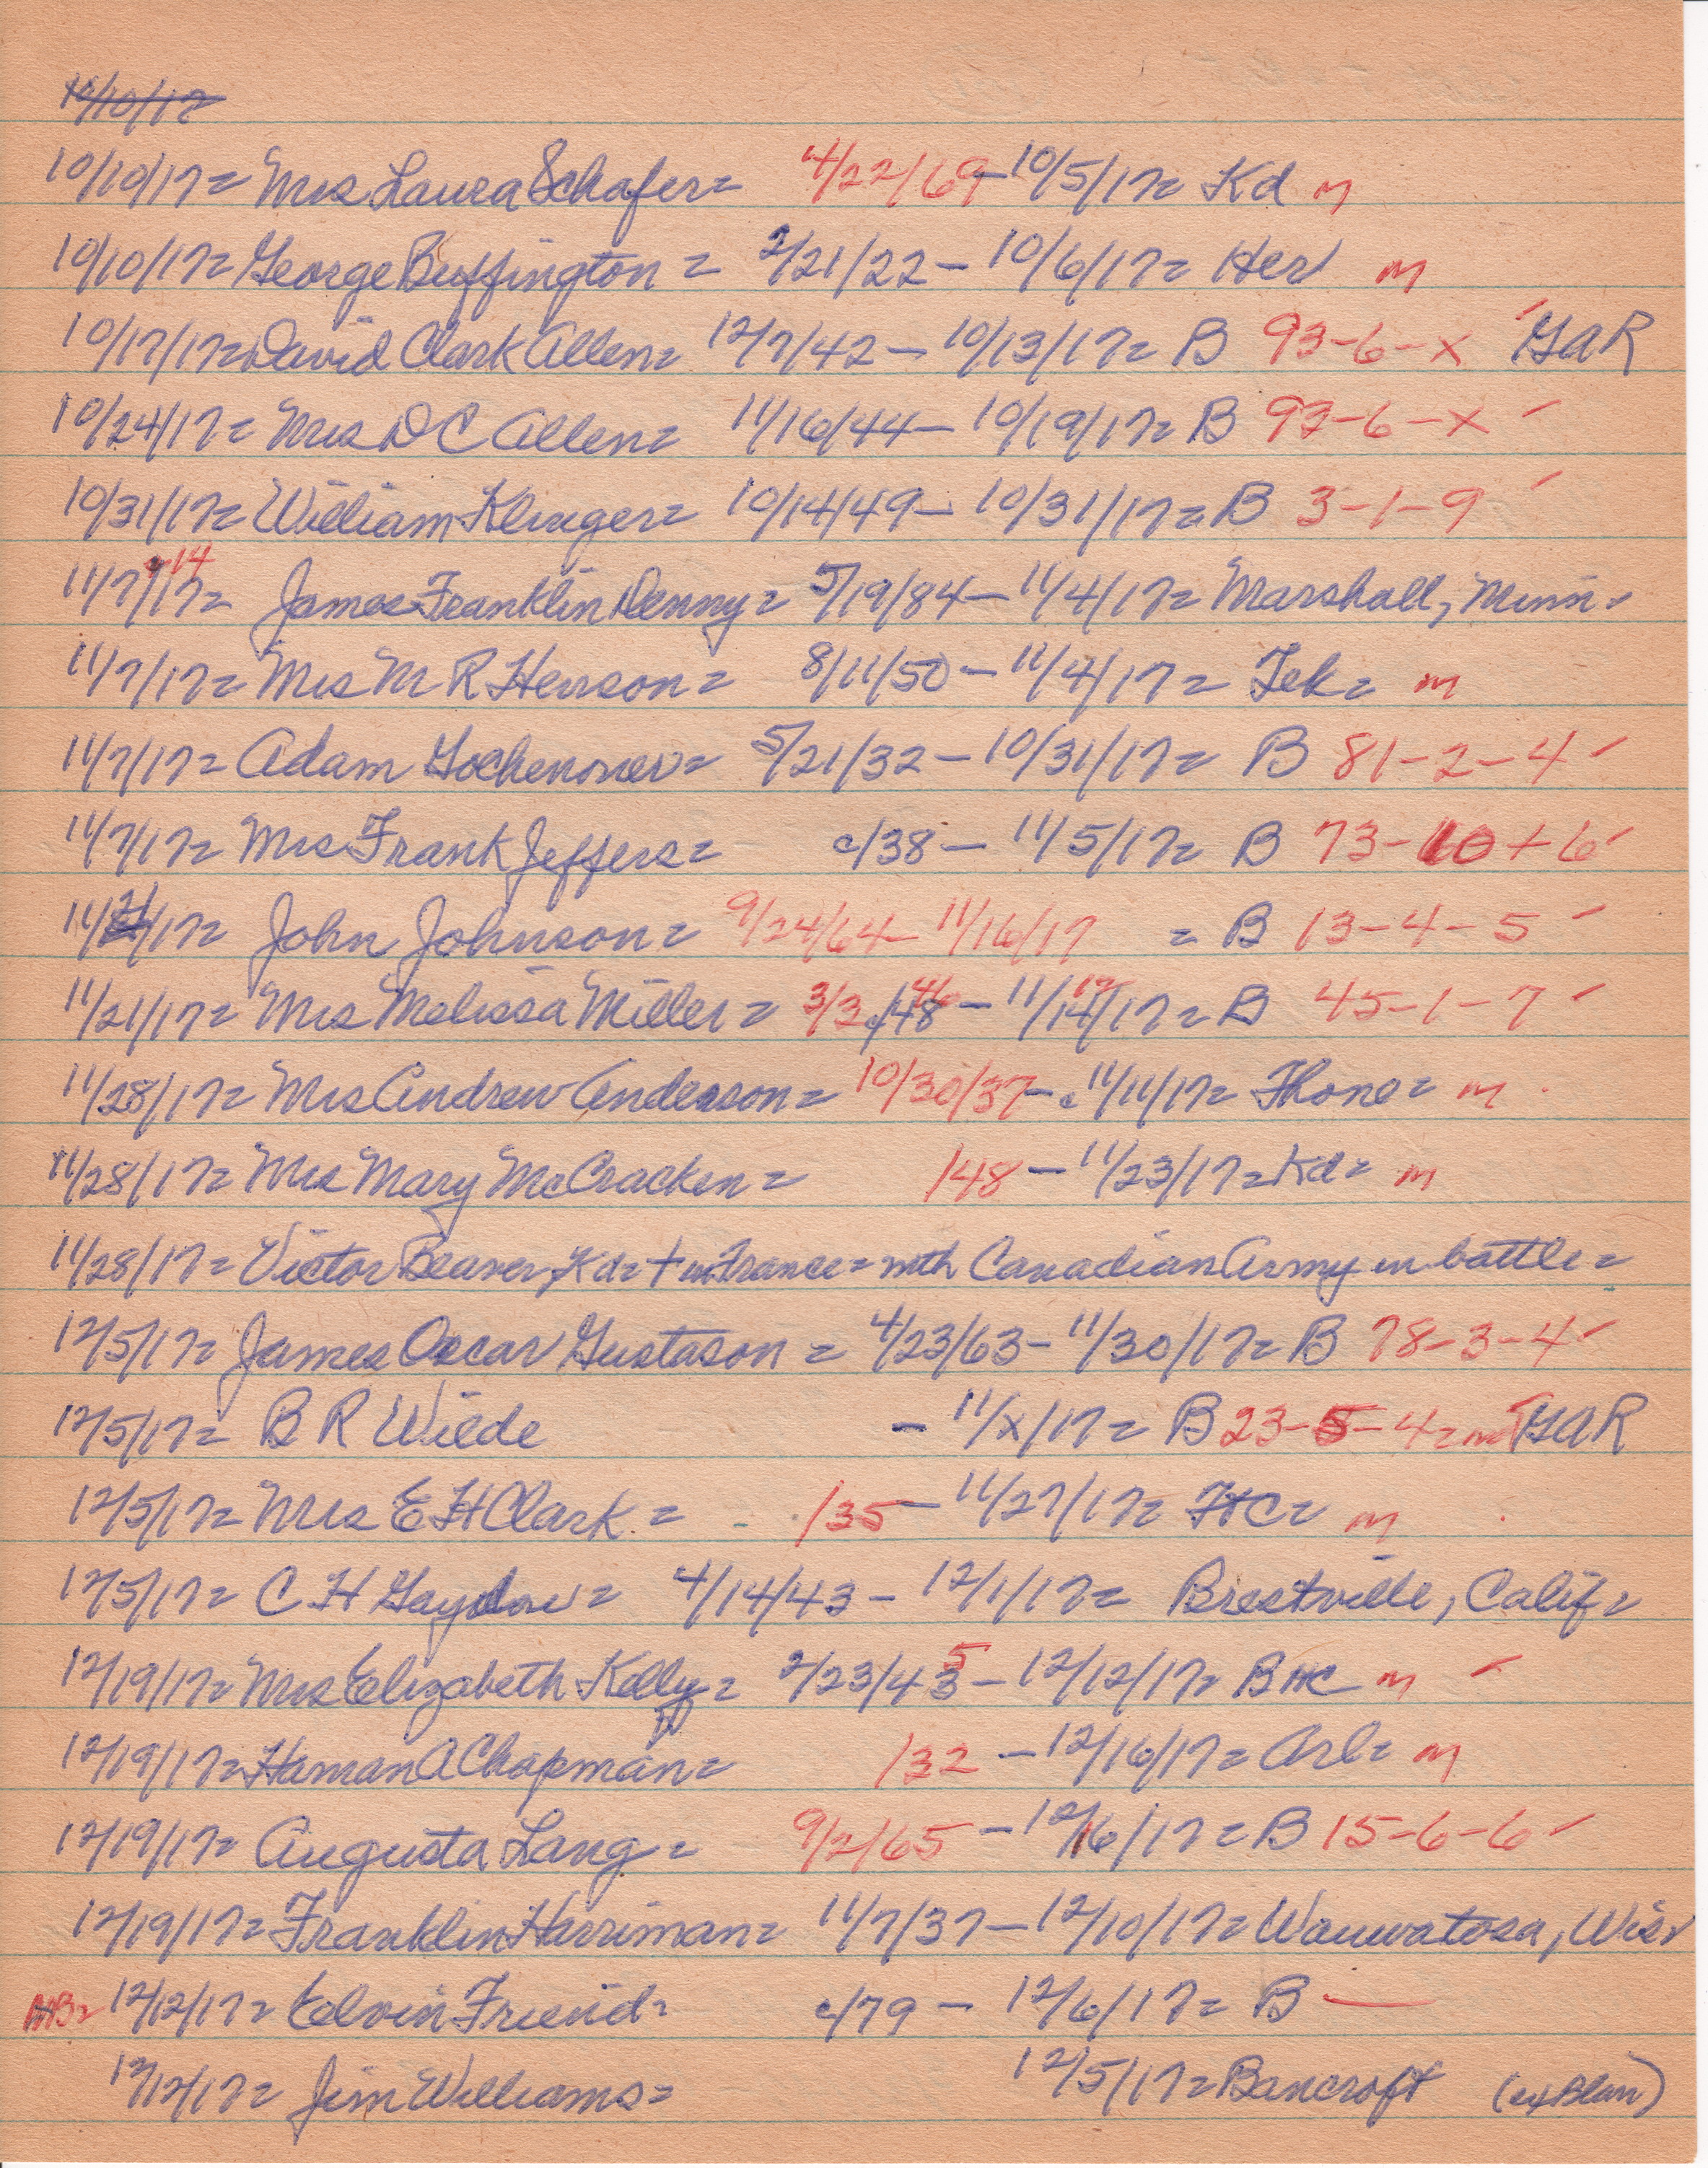 10/10/17
10/10/17= Mrs Laura Schafer= 4/22/69-10/5/17= Kd m
10/10/17= George Buffington= 2/21/22-10/6/17= Her m
10/17/17= David Clark Allen= 12/7/42-10/13/17= B 93-6-x GAR
10/24/17= Mrs D C Allen= 11/16/44-10/19/17= B 93-6-x
10/31/17= William Klinger= 10/14/49-10/31/17= B 3-1-9
11/7/17= 14 James Franklin Denny= 5/19/84-11/4/17= Marshall, Minn=
11/7/17= Mrs M R Henson= 8/11/50-11/4/17= Tek= m
11/7/17= Adam Gochenouer= 5/21/32-10/31/17= B 81-2-4
11/7/17= Mrs Frank Jeffers= c/38-11/5/17= B 73-10+6
11/21/17= John Johnson= 9/24/64-11/16/17 = B 13-4-5
11/21/17= Mrs Melissa Miller= 3/3 c/48 46-11/14/17= 12 B 45-1-7
11/28/17= Mrs Andrew Anderson= 10/30/37-c11/11/17= Fhone= m
11/28/17= Mrs Mary McCracken= /48-11/23/17= Kd= m
11/28/17= Victor Beaver, Kd= + in France= with Canadian Army in battle=
12/5/17= James Oscar Gustason= 4/23/63-11/30/17= B 78-3-4
12/5/17= B R Wilde -11/x/17= B 23-5-4= GAR
12/5/17= Mrs E H Clark= /35-11/27/17= HC= m
12/5/17= C H Gaydou= 4/14/43-12/1/17= Brestville, Calif=
12/19/17= Mrs Elizabeth Kelly= 2/23/43 5-12/12/17= B HC m
12/19/17= Haman A Chapman= /32-12/16/17= Arl= m
12/19/17= Augusta Lang= 9/2/65-12/16/17= B 15-6-6
12/19/17= Franklin Harriman= 11/7/37-12/10/17= Wauwatosa, Wis=
12/12/17= Elvin Friend= c/79-12/6/17= B
12/12/17= Jim Williams= 12/5/17= Bancroft (ex Blair)